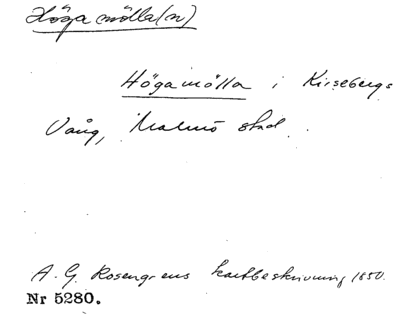 Höga mölla(n)
Högamölla i Kirsebergs
Vång, Malmö stad.
A. G. Rosengrens kartbeskrivning 1850.
Nr 5280.